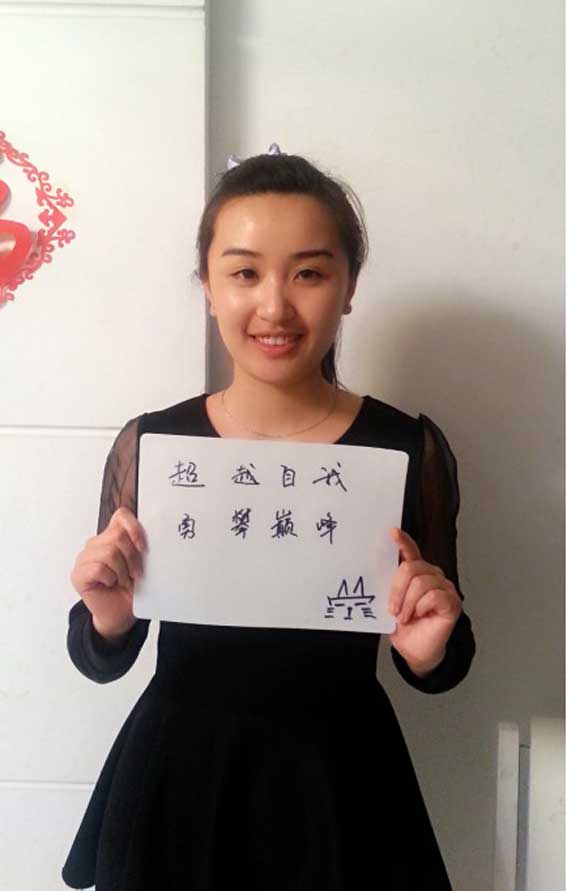 超越自我
勇攀巅峰